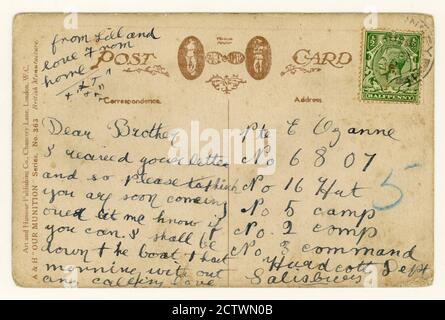 from Lill and
love from
home
POST CARD
Correspondence.
Address
Dear Brother
I reaired your letter
and so please to think
you are soon coming
oued let me know if
you can. I shall be
down the boat that
morning with out
any calling love
Pte E Ozanne
No 6807
No 16 Hut
No 5 camp
No 2 comp
No 3 command
Hurdcott Dept
Salisbury
5
Art and Humour Publishing Co., Chancery Lane, London, W.C.
A & H "OUR MUNITION" Series, No. 363 British Manufacture.
alamy
Image ID: 2CTWN0B
www.alamy.com